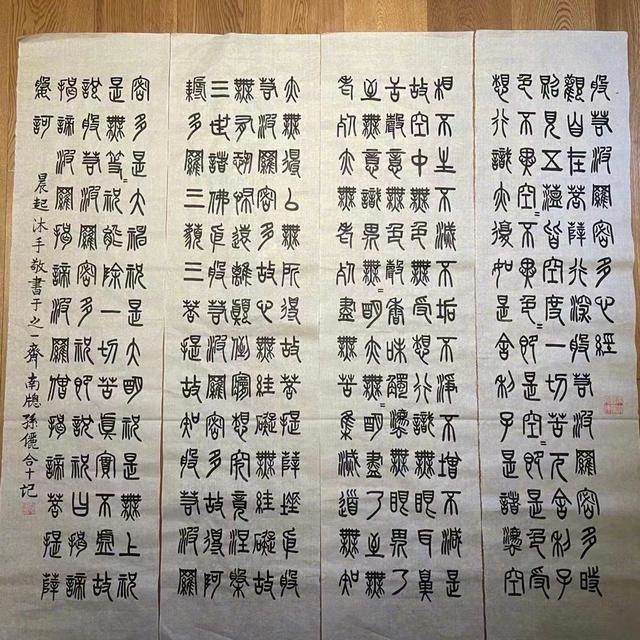 般若波羅密多心經
觀自在菩薩行深般若波羅密多時
照見五蘊皆空度一切苦厄舍利子
色不異空=不異色=即是空=即是色受
想行識亦復如是舍利子是諸法空
相不生不滅不垢不淨不增不減是
故空中無色無受想行識無眼耳鼻
舌身意無色聲香味觸法無眼界乃
至無意識界無=明亦無=明盡乃至無
老死亦無老死盡無苦集滅道無知
亦無得以無所得故菩提薩埵依般
若波羅密多故心無罣礙無罣礙故
無有恐怖遠離顛倒夢想究竟涅槃
三世諸佛依般若波羅密多故得阿
耨多羅三藐三菩提故知般若波羅
密多是大神咒是大明咒是無上咒
是無等=咒能除一切苦真實不虛故
說般若波羅密多咒即說咒曰揭諦
揭諦波羅揭諦波羅僧揭諦菩提薩
婆訶
晨起沐手敬書于之一齋南牕孫儷合十記